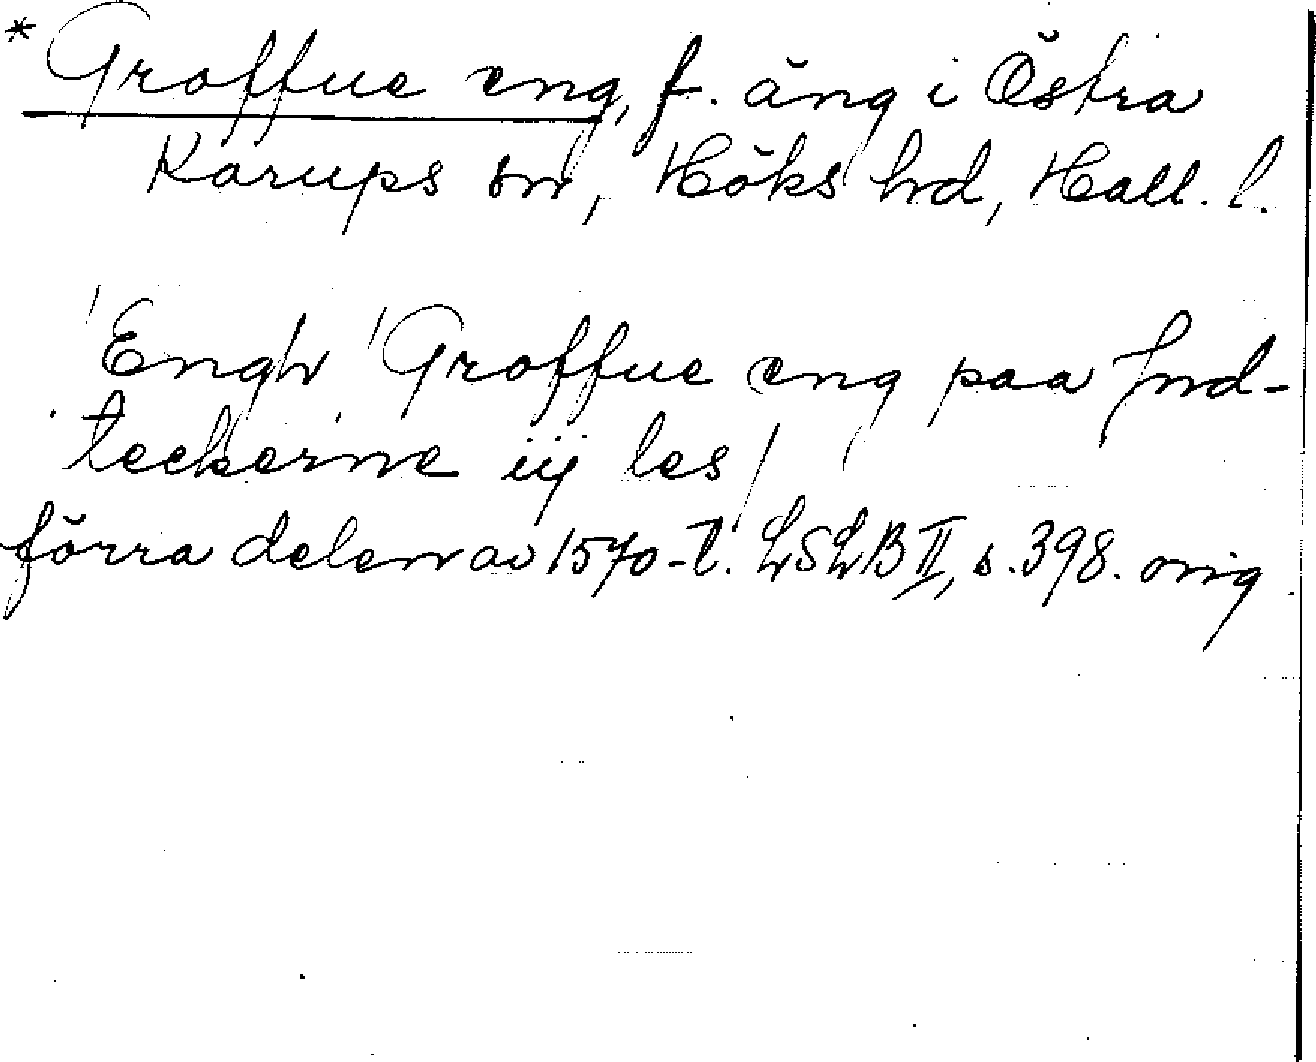 * Groffue eng, f. äng i Östra
Karups sn, Höks hd, Hall. l.
'Engh 'Groffue eng paa Ind-
teckerne iij les/
förra delen av 1570-t. LSLB II, s. 398. orig